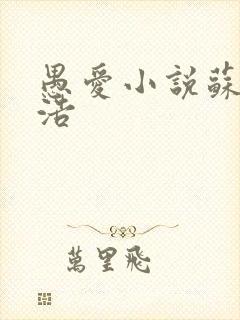 愚愛小說蘇
活
萬里飛